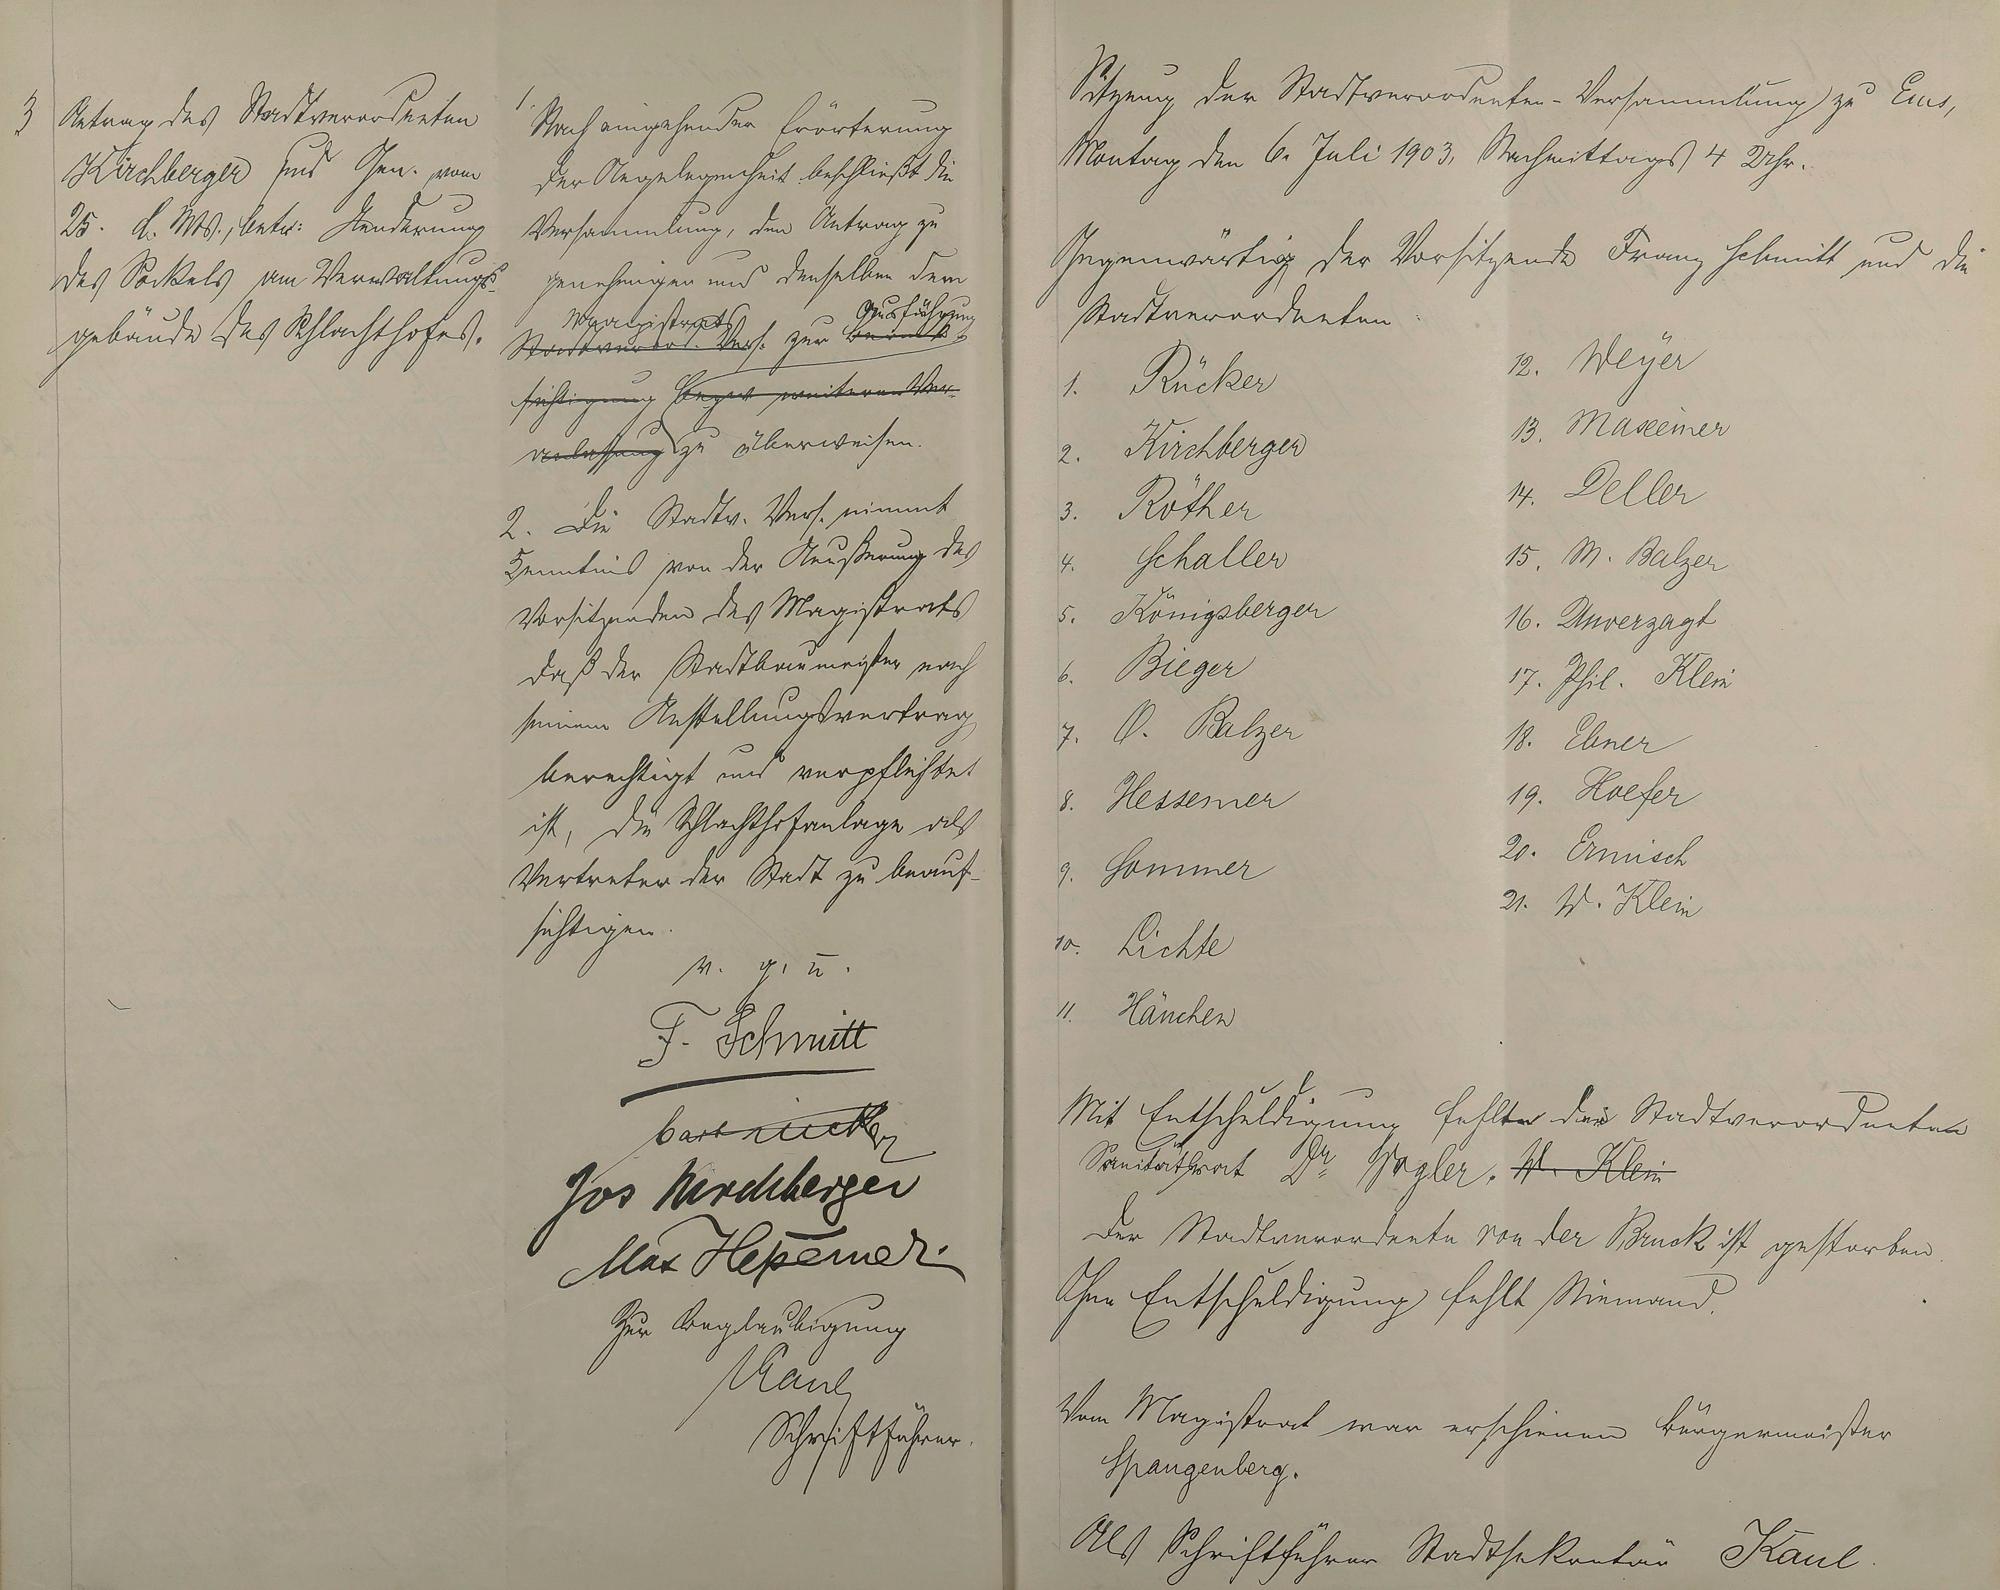 3 Antrag des Stadtverordneten
Kirchberger und Gen. vom
25. d. Mts., betr: Aenderung
des Sockels am Verwaltungs-
gebäude des Schlachthofes.
1. Nach eingehender Erörterung
der Angelegenheit beschließt die
Versammlung, den Antrag zu
genehmigen und denselben dem
Magistrats Ausführung
Stadtverord. Vers. zur Berück-
sichtigung bezw. weiteren Ver-
anlassung zu überweisen.
2. Die Stadtv. Vers. nimmt
Kenntnis von der Aeußerung des
Vorsitzenden des Magistrats
daß der Stadtbaumeister nach
seinem Anstellungsvertrag
berechtigt und verpflichtet
ist, die Schlachthofanlage als
Vertreter der Stadt zu beauf-
sichtigen.
v. g. u.
F. Schmitt
Jos Kirchberger
Max Hessemer
Zur Beglaubigung
Kaul
Schriftführer.
Sitzung der Stadtverordneten-Versammlung zu Ems,
Montag den 6. Juli 1903, Nachmittags 4 Uhr.
Gegenwärtig der Vorsitzende Franz Schmitt und die
Stadtverordneten
1. Rücker
2. Kirchberger
3. Röther
4. Schaller
5. Königsberger
6. Bieger
7. O. Balzer
8. Hessemer
9. Sommer
10. Lichte
11. Hänchen
12. Weyer
13. Maxeiner
14. Deller
15. M. Balzer
16. Unverzagt
17. Phil. Klein
18. Ebner
19. Hoefer
20. Ermisch
21. W. Klein
Mit Entschuldigung fehlte der Stadtverordneten
Sanitätsrat Dr Vogler. W. Klein
Der Stadtverordnete von der Bruck ist gestorben.
Ohne Entschuldigung fehlt Niemand.
Vom Magistrat war erschienen Bürgermeister
Spangenberg.
Als Schriftführer Stadtsekretär Kaul.